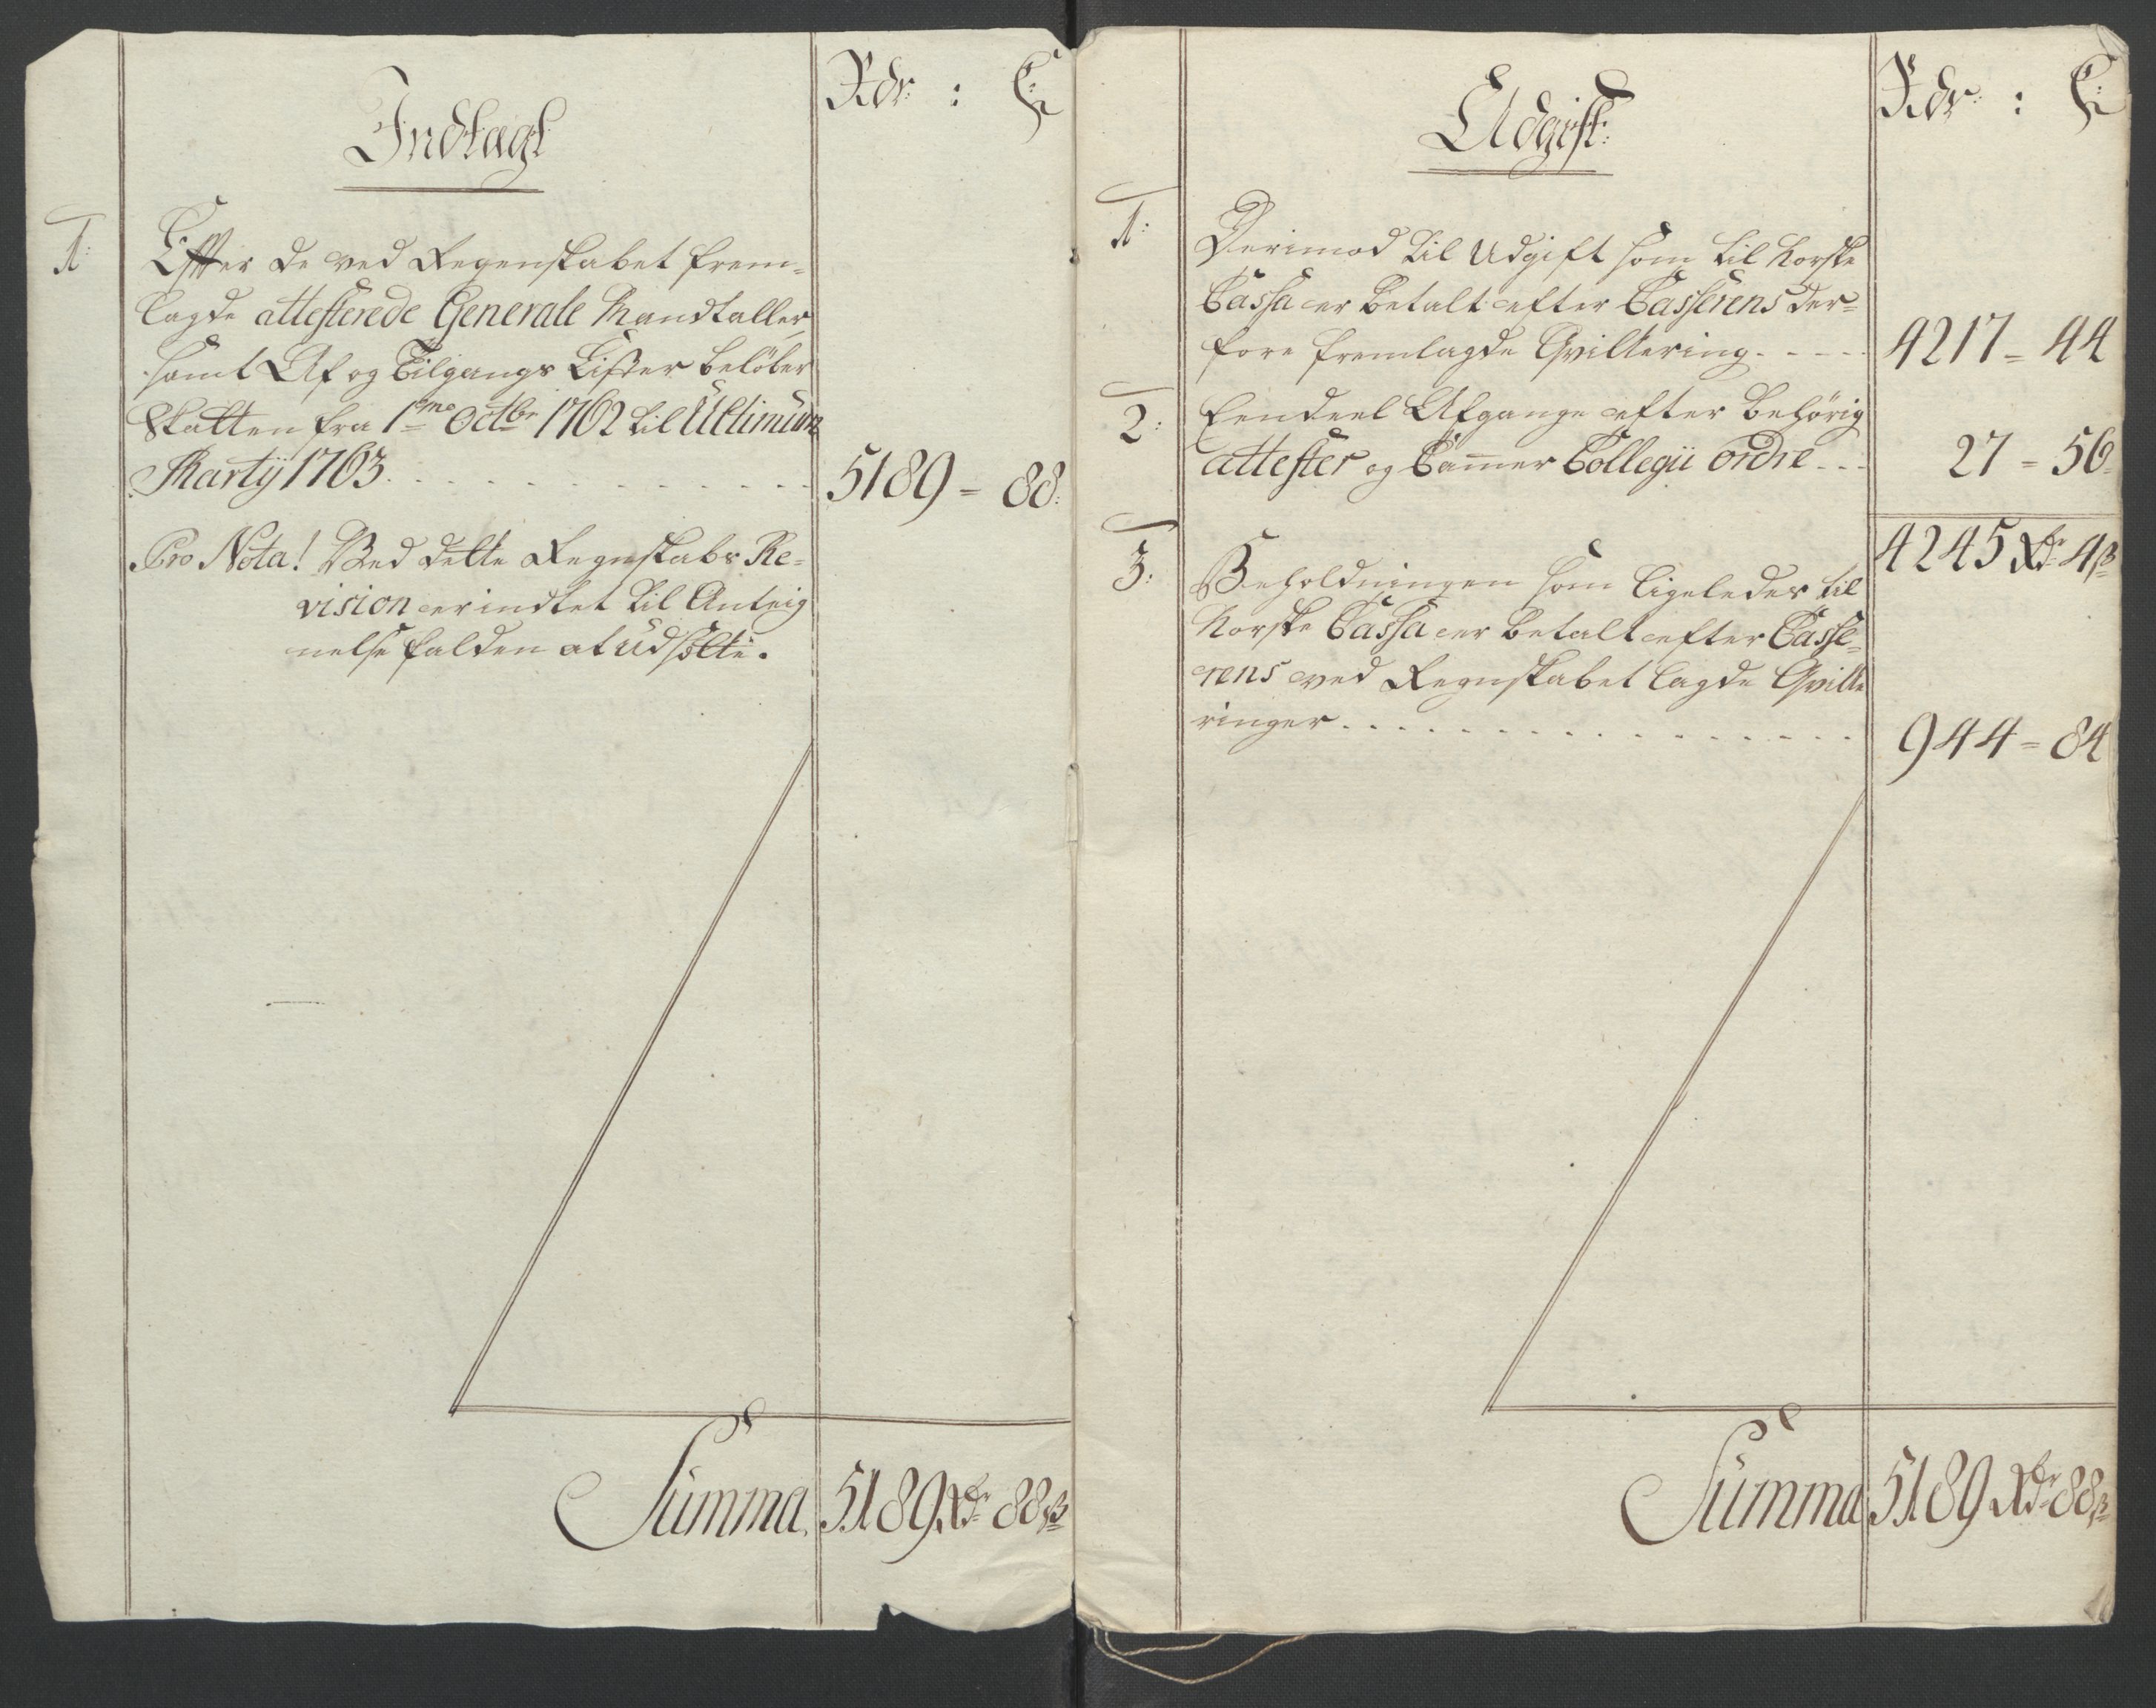 Rdr : ß
Indtægt
1: Effter de ved Regenskabet frem-
lagde attesterede Generale Mandtaller
samt Af og Tilgangs Lister beløber
Skatten fra 1me Octbr 1762 til Ultimum
Martij 1763. 5189 = 88:
Pro Nota! Ved dette Regnskabs Re-
vision er indtet til Anteig
nelse falden at udsætte.
Summa. 5189 Rdr 88 ß
Rdr : ß
Udgift:
1: Derimod til Udgift som til Norske
Cassa er betalt efter Casserens der-
fore fremlagde Qvittering. 4217 = 44
2: Eendeel Afgange efter behørig
attester og Cammer Collegii ordre 27 = 56
4245 Rdr 4 ß
3: Beholdningen som ligeledes til
Norske Cassa er betalt efter Casse-
rens ved Regnskabet lagde Qvitte
ringer 944 = 84
Summa 5189 Rdr 88 ß